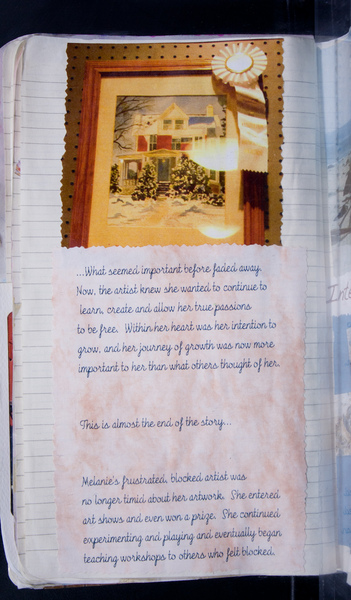 ...What seemed important before faded away.
Now, the artist knew she wanted to continue to
learn, create and allow her true passions
to be free. Within her heart was her intention to
grow, and her journey of growth was now more
important to her than what others thought of her.
This is almost the end of the story...
Melanie's frustrated, blocked artist was
no longer timid about her artwork. She entered
art shows and even won a prize. She continued
experimenting and playing and eventually began
teaching workshops to others who felt blocked.